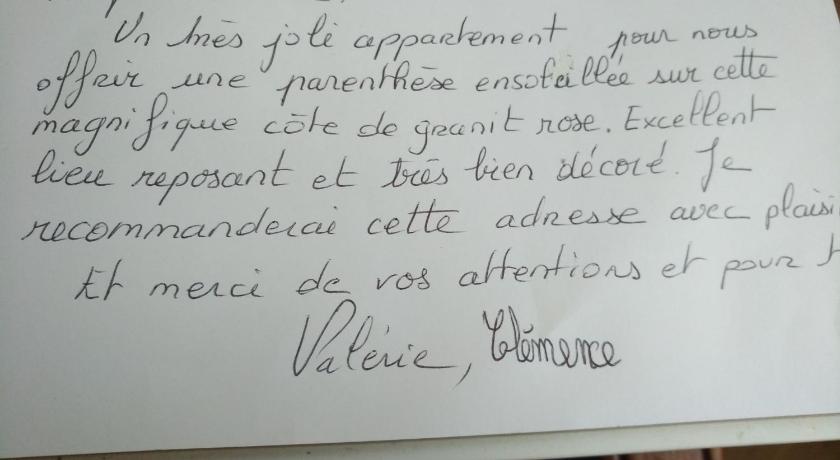 Un très joli appartement pour nous
offrir une parenthèse ensoleillée sur cette
magnifique côte de granit rose. Excellent
lieu reposant et très bien décoré. Je
recommanderai cette adresse avec plaisi
Et merci de vos attentions et pour
Valérie, Clémence